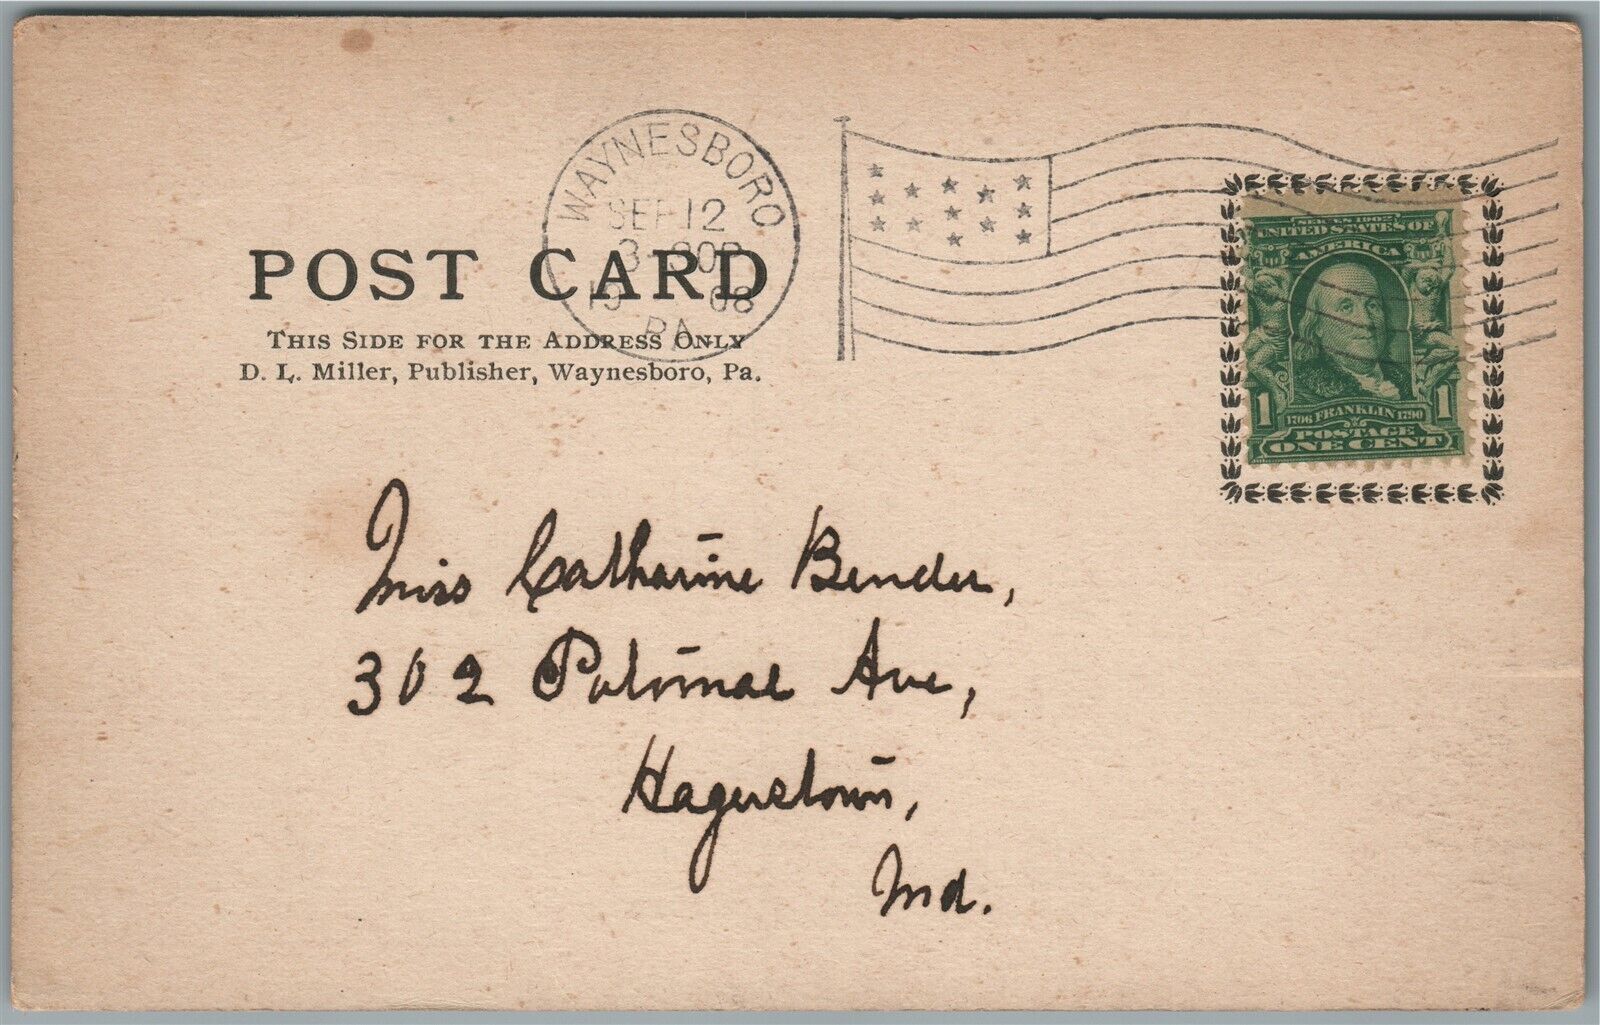 WAYNESBORO
SEP 12
3 30P
19 08
PA.
POST CARD
THIS SIDE FOR THE ADDRESS ONLY
D. L. Miller, Publisher, Waynesboro, Pa.
SERIES 1902
UNITED STATES OF
AMERICA
1 1706 FRANKLIN 1790 1
POSTAGE
ONE CENT
Miss Catharine Bender,
302 Potomac Ave,
Hagerstown,
Md.